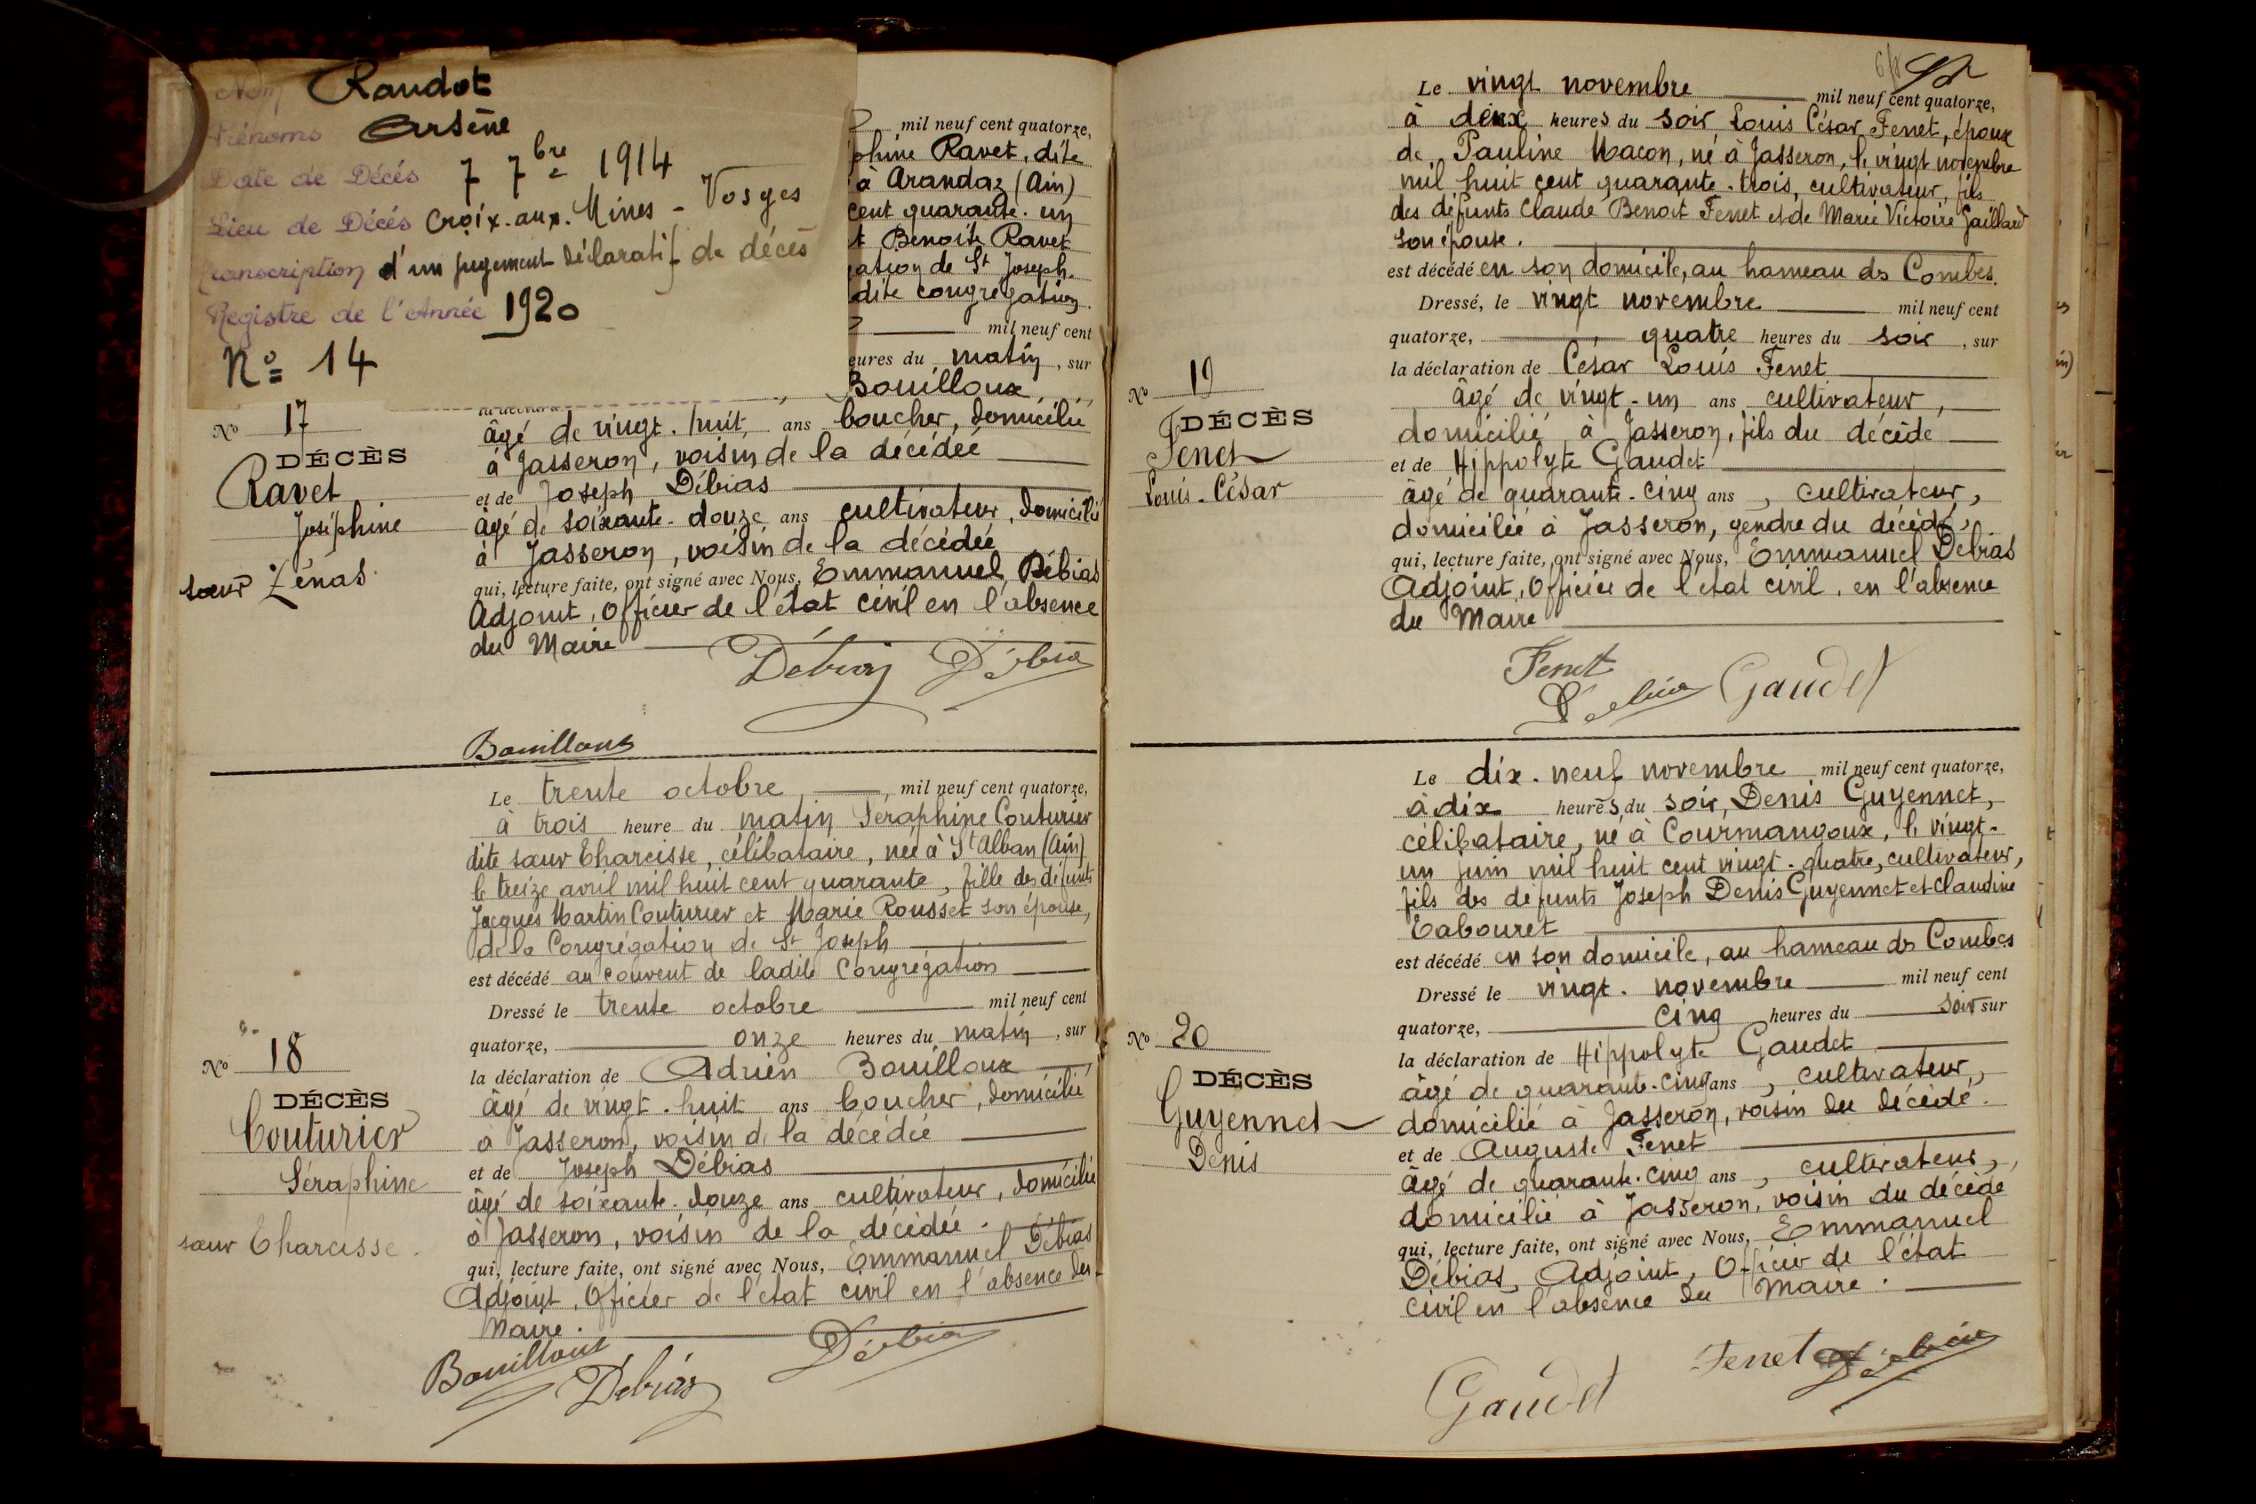 Nom Raudot
Prénoms Arsène
Date de Décés 7 7bre 1914
Lieu de Décés Croix-aux-Mines - Vosges
Transcription d'un jugement déclaratif de décès
Registre de l'Année 1920
No 14
mil neuf cent quatorze,
phine Ravet, dite
à Arandaz (Ain)
cent quarante-un
t Benoite Ravet
ation de St Joseph.
dite congrégation.
mil neuf cent
eures du matin, sur
Bouilloux,
No 17
DÉCÈS
Ravet
Joséphine
sœur Zénas
âgé de vingt-huit ans boucher, domicilié
à Jasseron, voisin de la décédée
et de Joseph Débias
âgé de soixante-douze ans cultivateur, domicilié
à Jasseron, voisin de la décédée
qui, lecture faite, ont signé avec Nous, Emmanuel Débias
Adjoint, Officier de l'état civil en l'absence
du Maire
Débias Débias
Bouilloux
No 18
DÉCÈS
Couturier
Séraphine
sœur Tharcisse.
Le trente octobre, mil neuf cent quatorze,
à trois heure du matin Séraphine Couturier
dite sœur Tharcisse, célibataire, née à St Alban (Ain)
le treize avril mil huit cent quarante, fille des défunts
Jacques Martin Couturier et Marie Rousset son épouse,
de la Congrégation de St Joseph
est décédé au couvent de ladite Congrégation
Dressé le trente octobre mil neuf cent
quatorze, onze heures du matin, sur
la déclaration de Adrien Bouilloux,
âgé de vingt-huit ans boucher, domicilié
à Jasseron, voisin de la décédée
et de Joseph Débias
âgé de soixante-douze ans cultivateur, domicilié
à Jasseron, voisin de la décédée.
qui, lecture faite, ont signé avec Nous, Emmanuel Débias
Adjoint, Officier de l'état civil en l'absence du
Maire.
Bouilloux Débias Débias
No 19
DÉCÈS
Fenet
Louis-César
Le vingt novembre mil neuf cent quatorze,
à deux heures du soir Louis César Fenet, époux
de Pauline Macon, né à Jasseron, le vingt novembre
mil huit cent quarante-trois, cultivateur, fils
des défunts Claude Benoit Fenet et de Marie Victoire Gaillard
son épouse.
est décédé en son domicile, au hameau des Combes.
Dressé, le vingt novembre mil neuf cent
quatorze, quatre heures du soir, sur
la déclaration de César Louis Fenet
âgé de vingt-un ans cultivateur,
domicilié à Jasseron, fils du décédé
et de Hippolyte Gaudet
âgé de quarante-cinq ans, cultivateur,
domicilié à Jasseron, gendre du décédé,
qui, lecture faite, ont signé avec Nous, Emmanuel Débias
Adjoint, Officier de l'état civil, en l'absence
du Maire
Fenet
Débias Gaudet
No 20
DÉCÈS
Guyennet
Denis
Le dix-neuf novembre mil neuf cent quatorze,
à dix heures du soir, Denis Guyennet,
célibataire, né à Courmangoux, le vingt-
un juin mil huit cent vingt-quatre, cultivateur,
fils des défunts Joseph Denis Guyennet et Claudine
Tabouret
est décédé en son domicile, au hameau des Combes
Dressé le vingt-novembre mil neuf cent
quatorze, cinq heures du soir sur
la déclaration de Hippolyte Gaudet
âgé de quarante-cinq ans, cultivateur,
domicilié à Jasseron, voisin du décédé.
et de Auguste Fenet
âgé de quarante-cinq ans, cultivateur,
domicilié à Jasseron, voisin du décédé
qui, lecture faite, ont signé avec Nous, Emmanuel
Débias, Adjoint, Officier de l'état
civil en l'absence du Maire.
Gaudet Fenet Débias